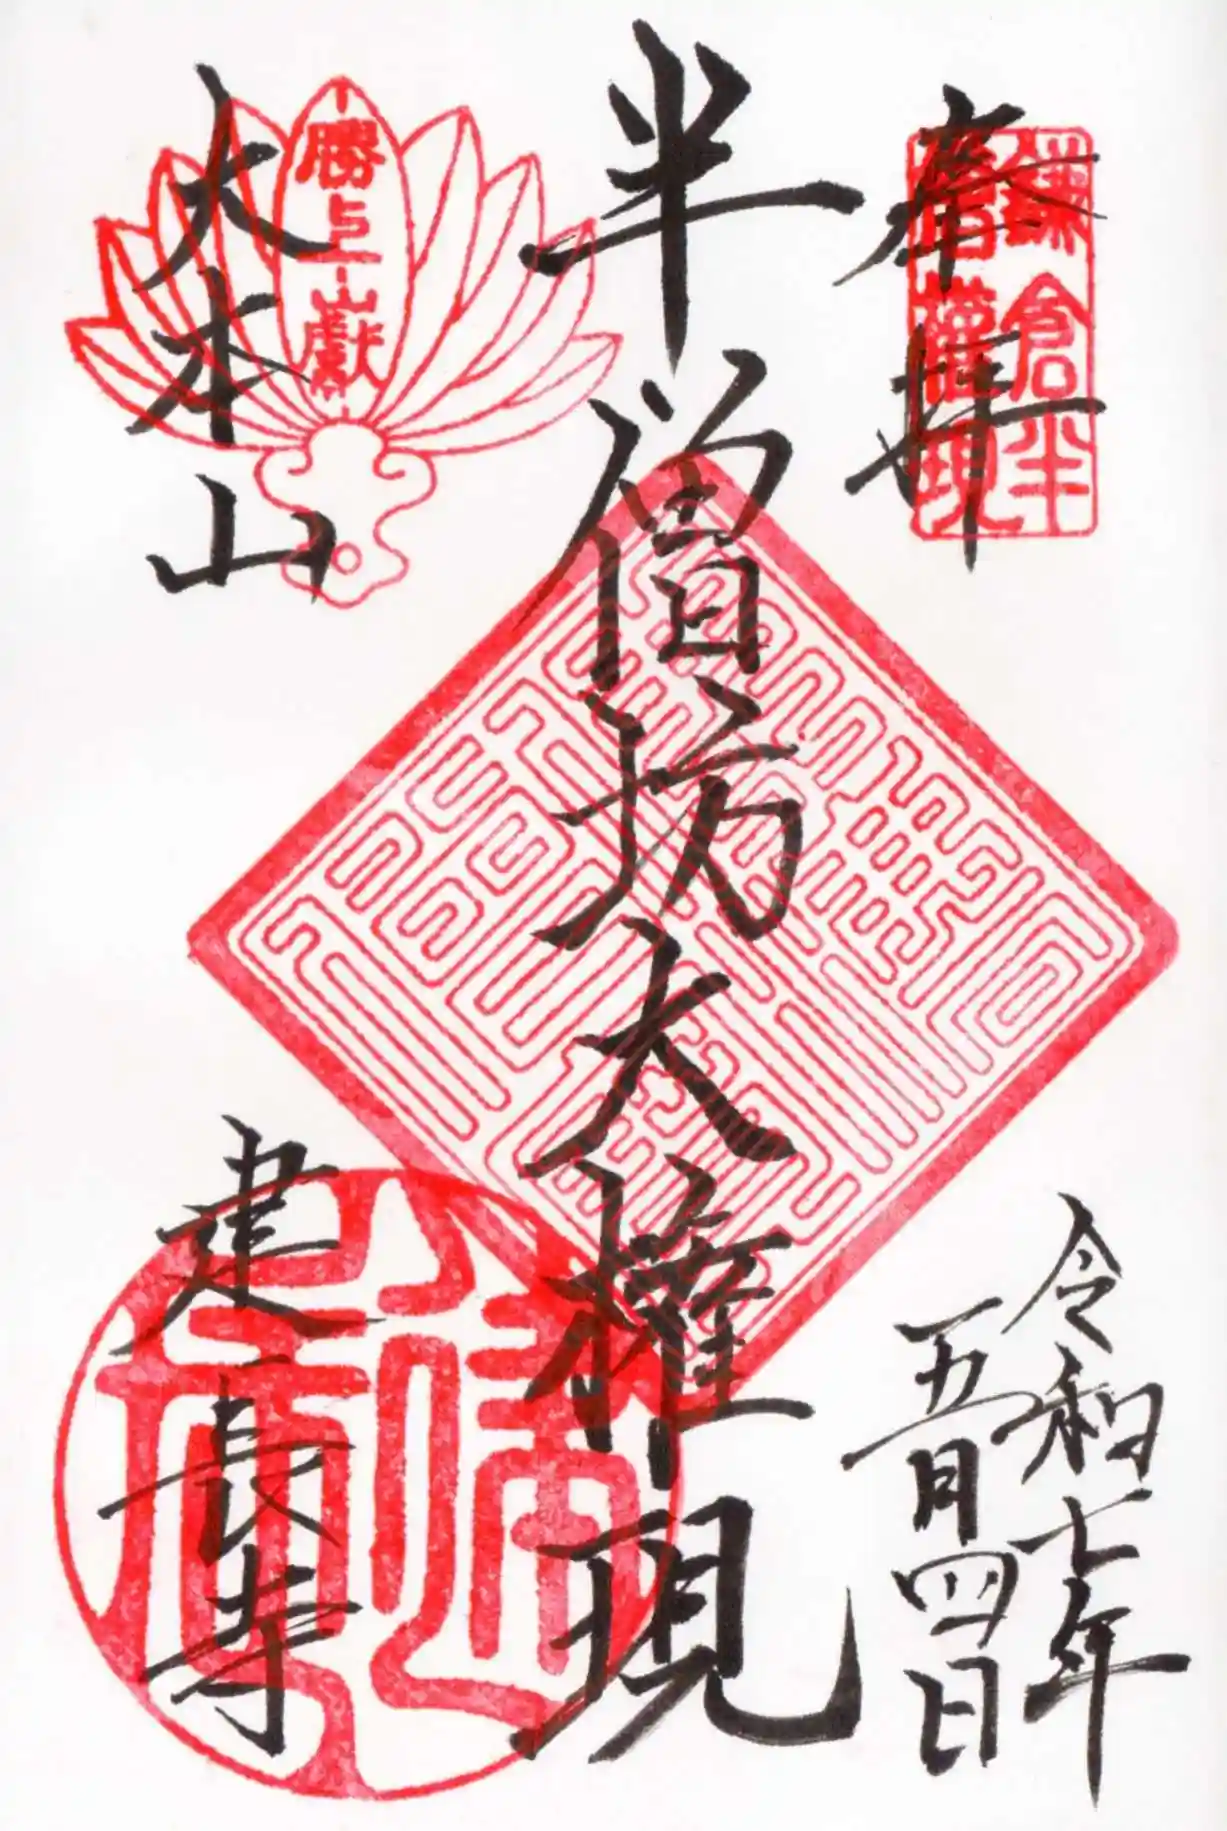 奉拝
鎌倉半
僧権現
令和七年
五月四日
半僧坊大権現
勝上山獻
大本山
建長寺